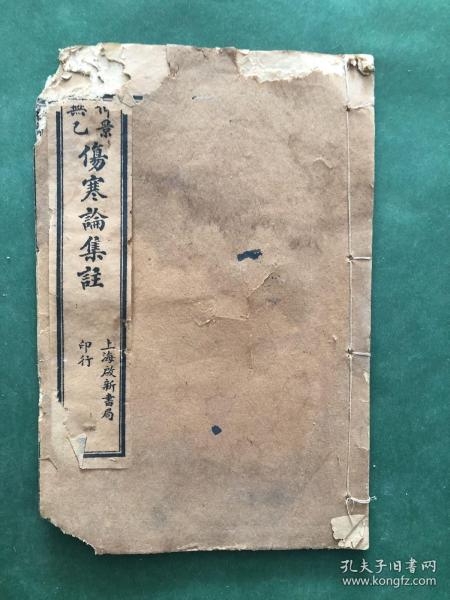 景
無己
傷寒論集註
上海啟新書局
印行
孔夫子旧书网
www.kongfz.com